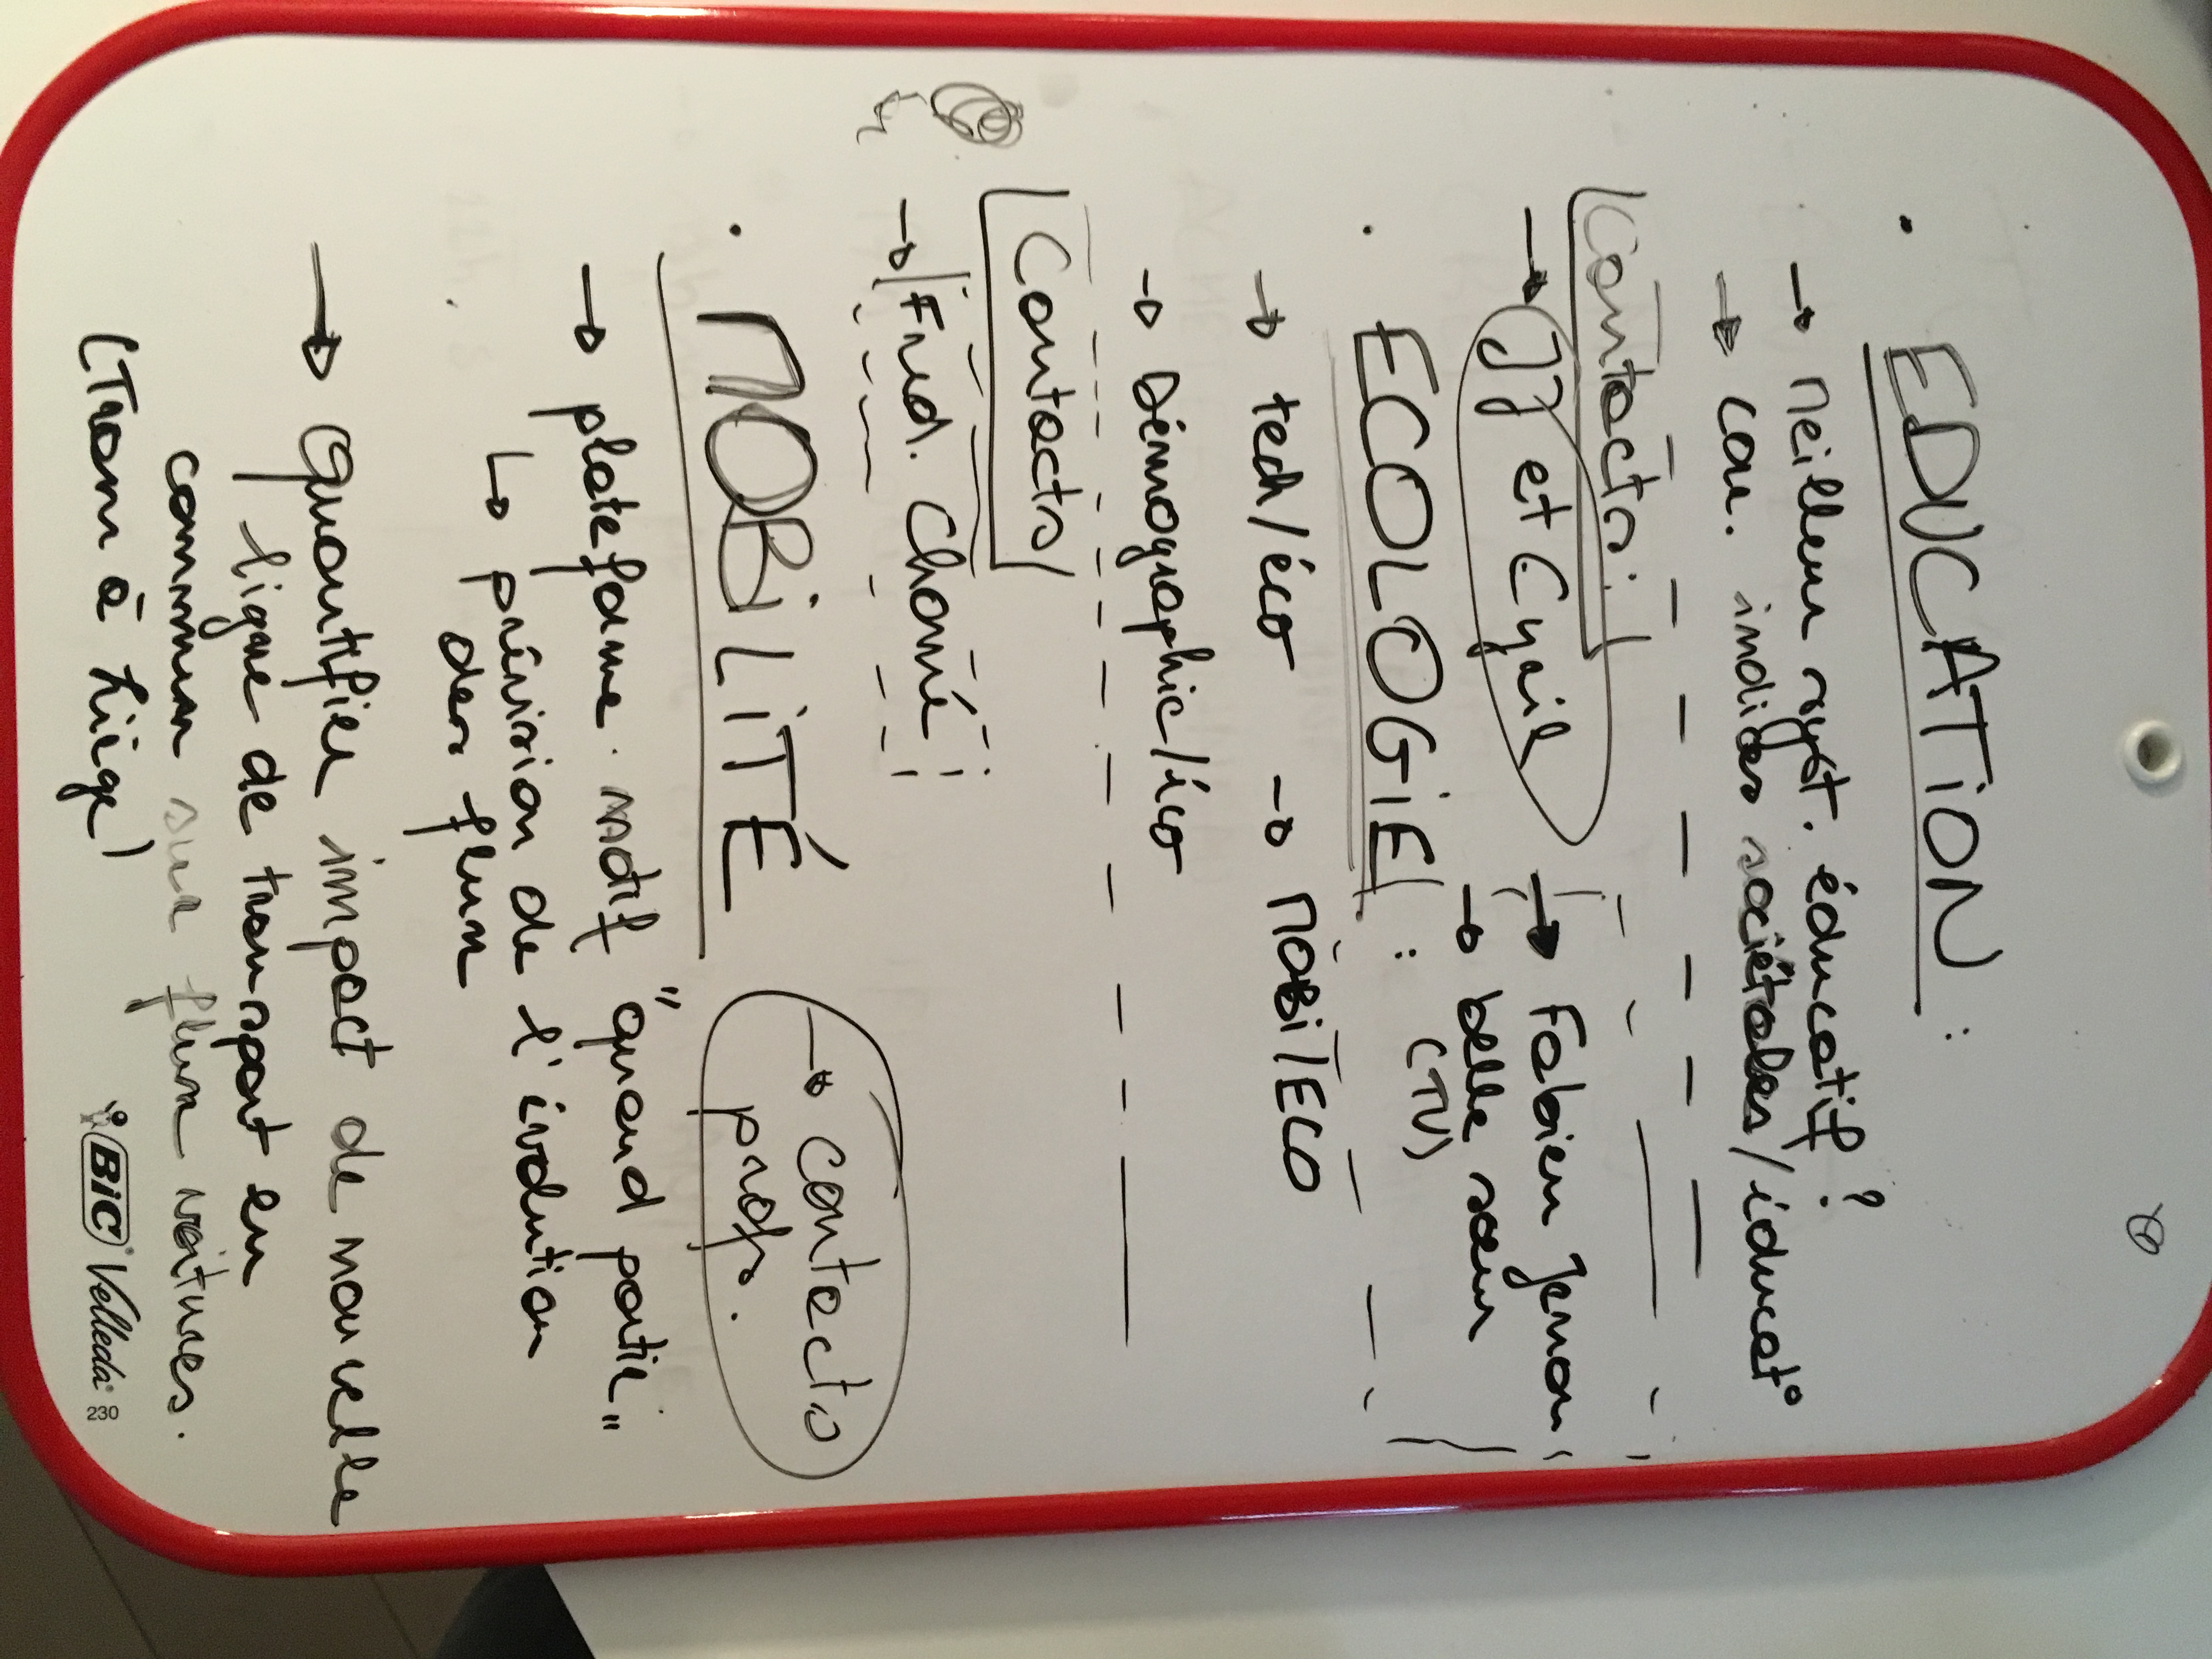 . EDUCATiON :
→ Meilleur syst. éducatif ?
→ Corr. indices sociétales/éducat°
Contacts :
→ JJ et Cyril
→ Fabien
→ belle sœur
(TV)
. ECOLOGiE :
→ tech/éco → MOBi/ECO
→ Démographie/éco
Contacts
→ Fred. Chomé
→ contacts
profs.
. MOBiLiTÉ
→ plateforme motif "quand partir"
↳ prévision de l'évolution
des flux
→ Quantifier impact de nouvelle
ligne de transport en
commun sur flux voitures.
(Tram à Liège)
BiC Velleda 230